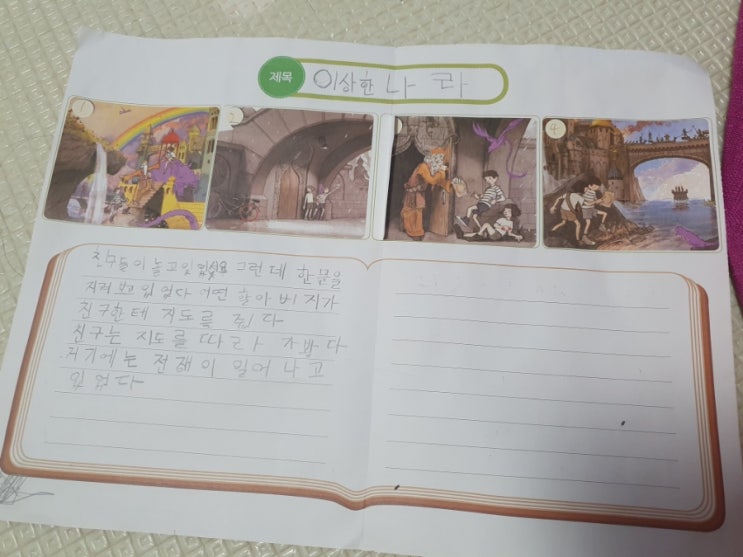 제목 이상한 나라
1
2
4
친구들이 놀고있 었었요 그런데 한 문을
지켜 보고 있 었다 어연 할아버 지가
친구한테 지도를 줬다
친구는 지도를 따라 가봤다
거기에는 전쟁이 일어나고
있었다